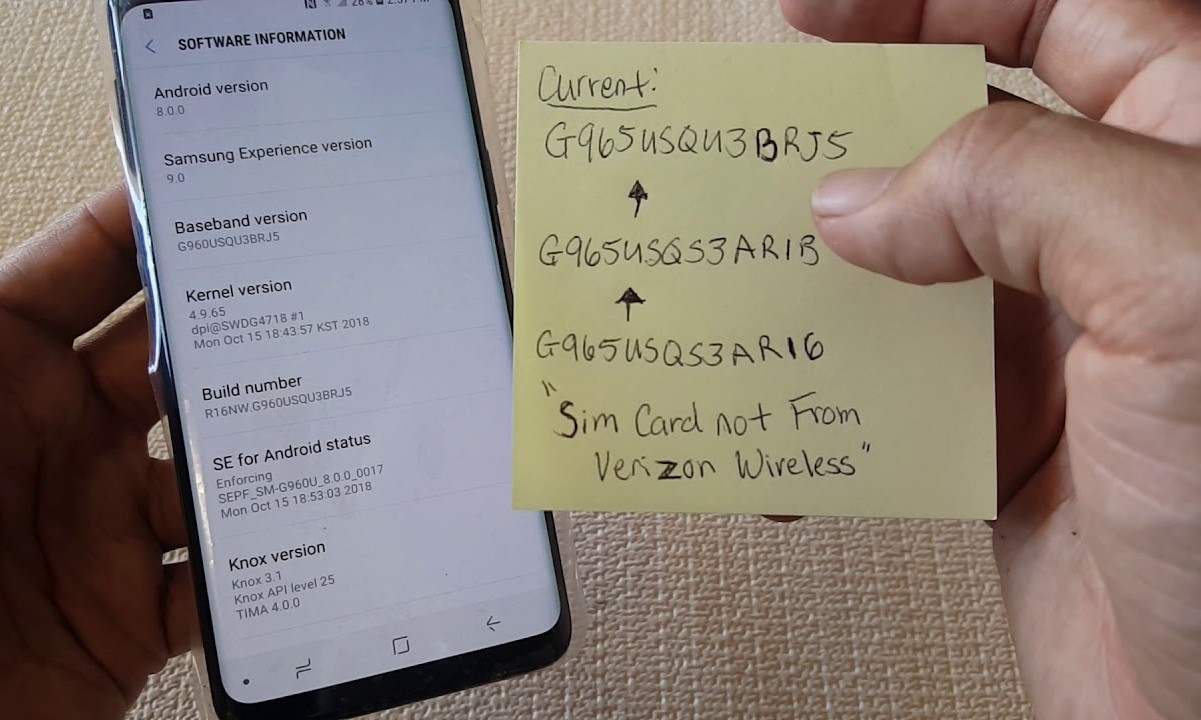 28%
SOFTWARE INFORMATION
Android version
8.0.0
Samsung Experience version
9.0
Baseband version
G960USQU3BRJ5
Kernel version
4.9.65
dpi@SWDG4718 #1
Mon Oct 15 18:43:57 KST 2018
Build number
R16NW.G960USQU3BRJ5
SE for Android status
Enforcing
SEPF_SM-G960U_8.0.0_0017
Mon Oct 15 18:53:03 2018
Knox version
Knox 3.1
Knox API level 25
TIMA 4.0.0
Current:
G965USQU3BRJ5
G965USQS3ARIB
G965USQS3ARI6
"Sim Card not From
Verizon Wireless"